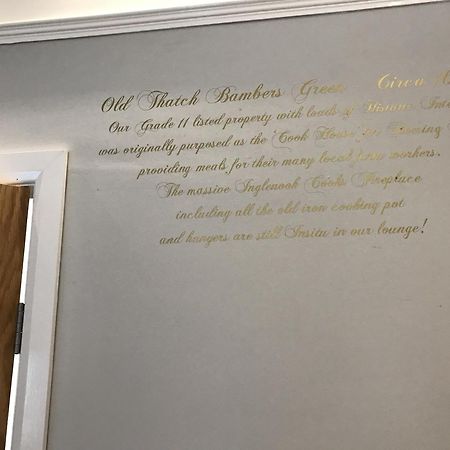 Old Thatch Bambers Green Circa
Our Grade 11 listed property with loads of Historic
was originally purposed as the 'Cook House' for
providing meals for their many local farm workers.
The massive Inglenook Cooks Fireplace
including all the old iron cooking pot
and hangers are still Insitu in our lounge!